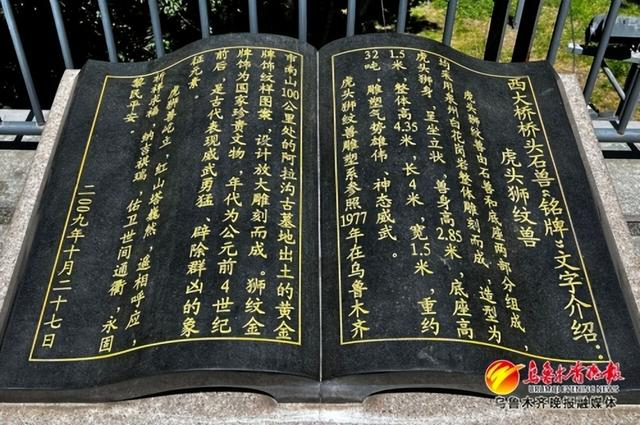 西大桥桥头石兽“铭牌”文字介绍：
虎头狮纹兽
虎头狮纹兽由石兽和底座两部分组成，
均采用泉州白花岗岩整体雕刻而成，造型为
虎头狮身，呈坐立状，兽身高2.85米，底座高
1.5米，整体高4.35米，长4米，宽1.5米，重约
32吨，雕塑气势雄伟、神态威武。
虎头狮纹兽雕塑系参照1977年在乌鲁木齐
市南山100公里处的阿拉沟古墓地出土的黄金
牌饰纹样图案，设计放大雕刻而成。狮纹金
牌饰为国家珍贵文物，年代为公元前4世纪
前后，是古代表现威武勇猛、辟除群凶的象
征元素。
虎狮兽屹立，红山塔巍然，遥相呼应，
祈祥永福，纳吉祺瑞，佑卫世间通衢，永固
黎民平安。
二〇〇九年十月二十七日
乌鲁木齐晚报
URUMQI EVENING NEWS
乌鲁木齐晚报融媒体